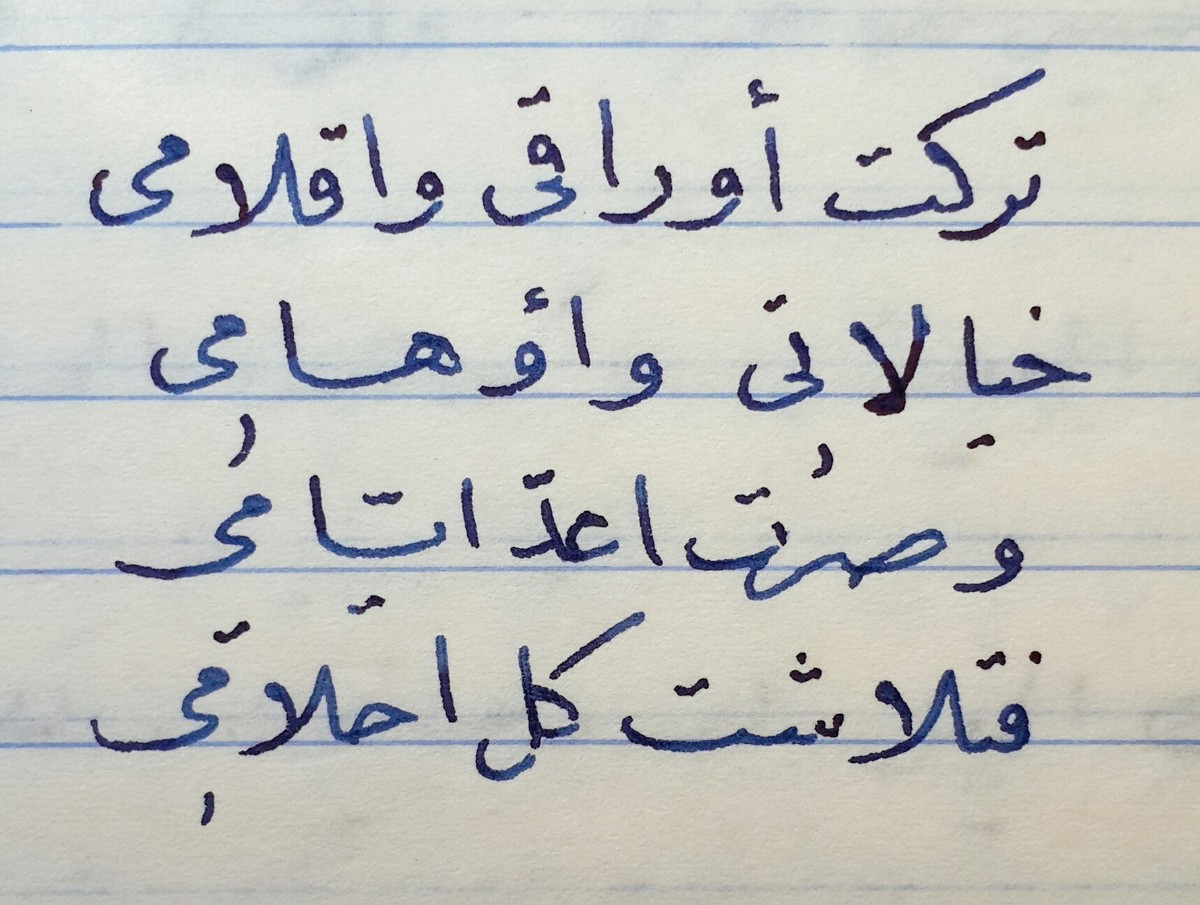 تركت أوراقى واقلامى
خيالاتى وأوهامى
وصرت اعدّ ايامى
فتلاشت كل احلامى